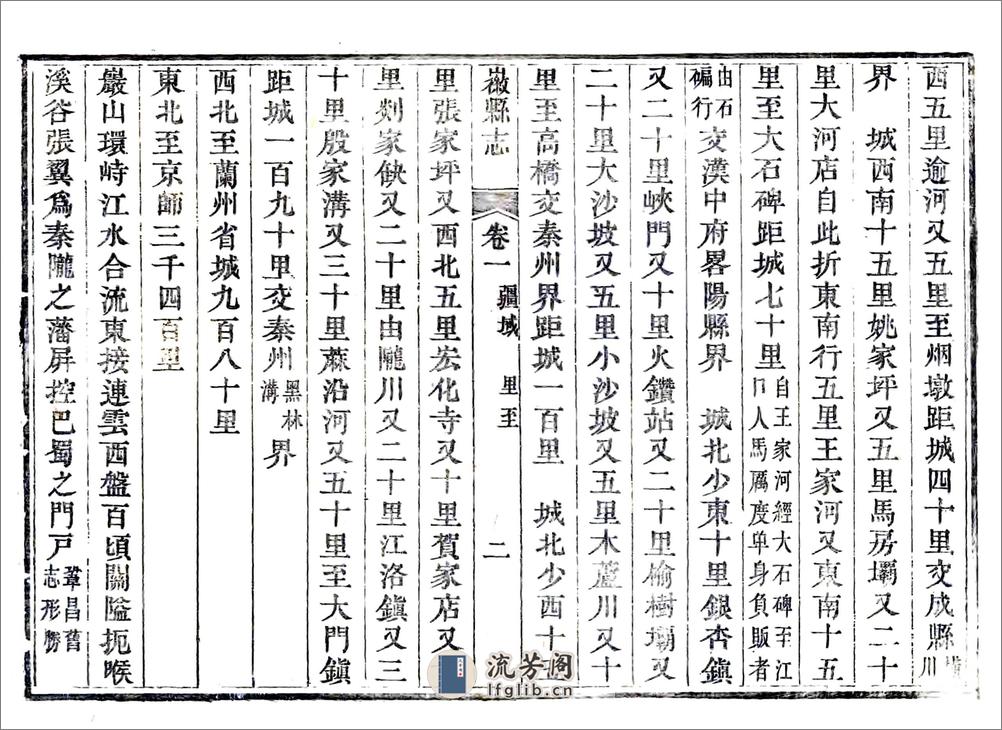 西五里逾河又五里至烟墩距城四十里交成縣橫川
界　城西南十五里姚家坪又五里馬房壩又二十
里大河店自此折東南行五里王家河又東南十五
里至大石碑距城七十里自王家河經大石碑至江口人馬厲度单身負販者
由石碥行交漢中府畧陽縣界　城北少東十里銀杏鎮
又二十里峽門又十里火鑽站又二十里榆樹壩又
二十里大沙坡又五里小沙坡又五里木蘆川又十
里至高橋交秦州界距城一百里　城北少西十
徽縣志　卷一　疆域　里至　二
里張家坪又西北五里宏化寺又十里賀家店又
里剡家缺又二十里由隴川又二十里江洛鎮又三
十里殷家溝又三十里蔴沿河又五十里至大門鎮
距城一百九十里交秦州黑林溝界
西北至蘭州省城九百八十里
東北至京師三千四百里
巖山環峙江水合流東接連雲西盤百頃關隘扼喉
溪谷張翼爲秦隴之藩屏控巴蜀之門戸鞏昌舊志形勝
流芳阁
lfglib.cn